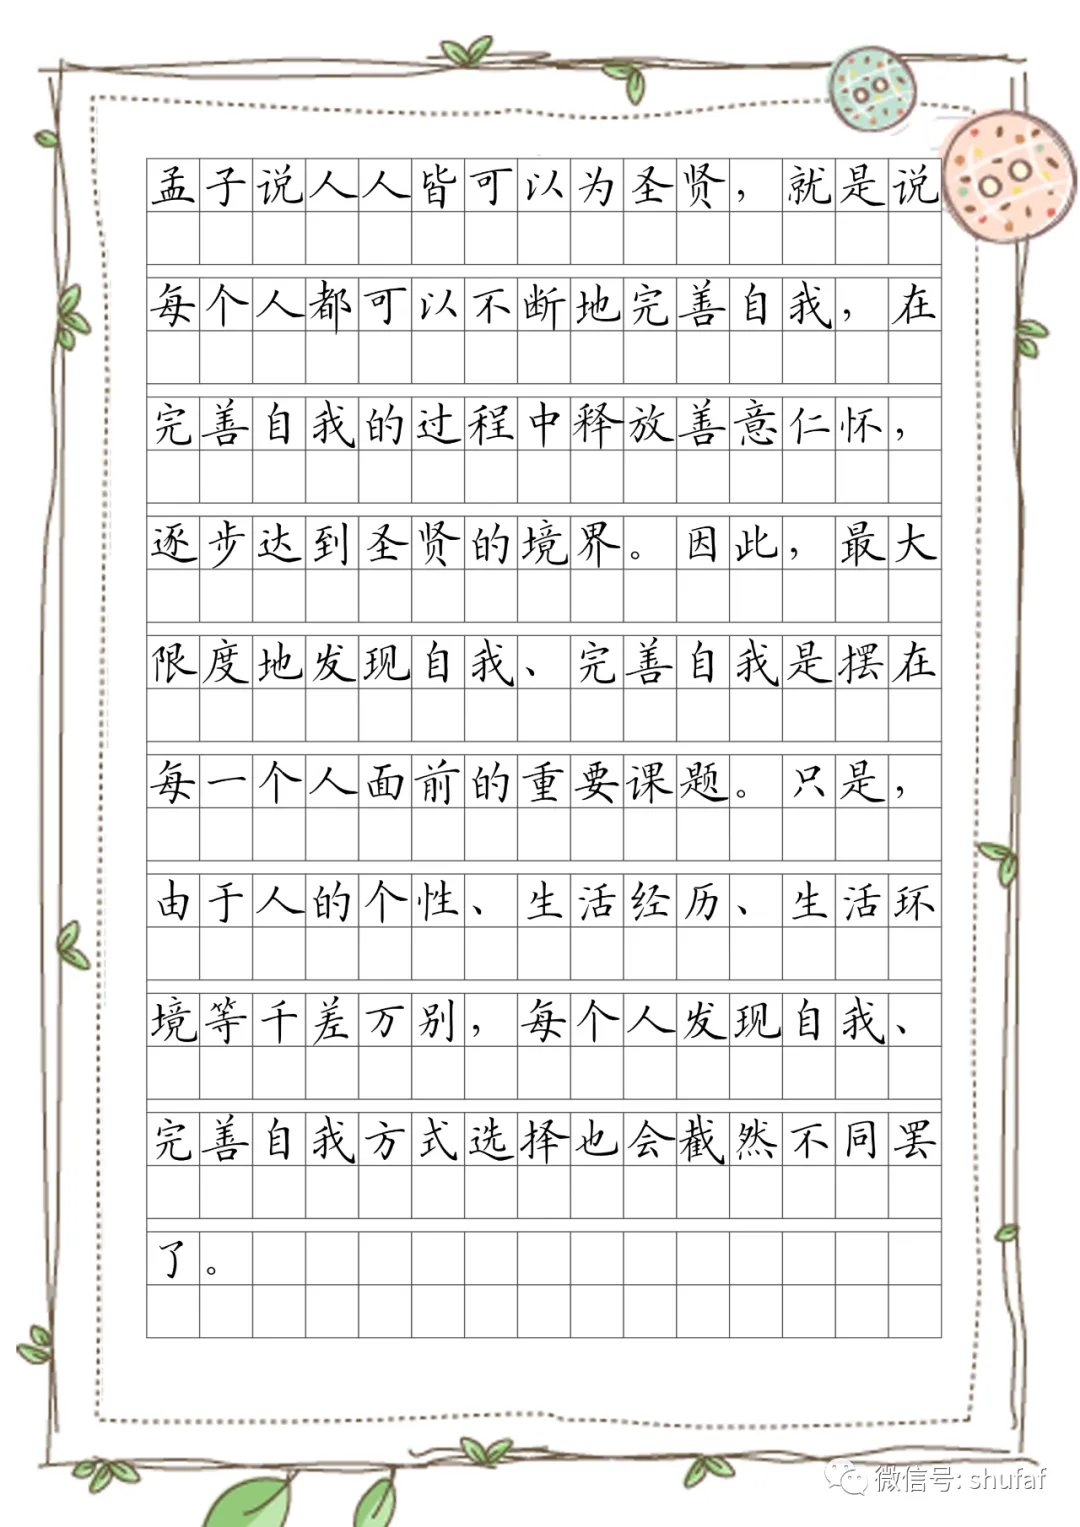 孟子说人人皆可以为圣贤，就是说
每个人都可以不断地完善自我，在
完善自我的过程中释放善意仁怀，
逐步达到圣贤的境界。因此，最大
限度地发现自我、完善自我是摆在
每一个人面前的重要课题。只是，
由于人的个性、生活经历、生活环
境等千差万别，每个人发现自我、
完善自我方式选择也会截然不同罢
了。
微信号: shufaf